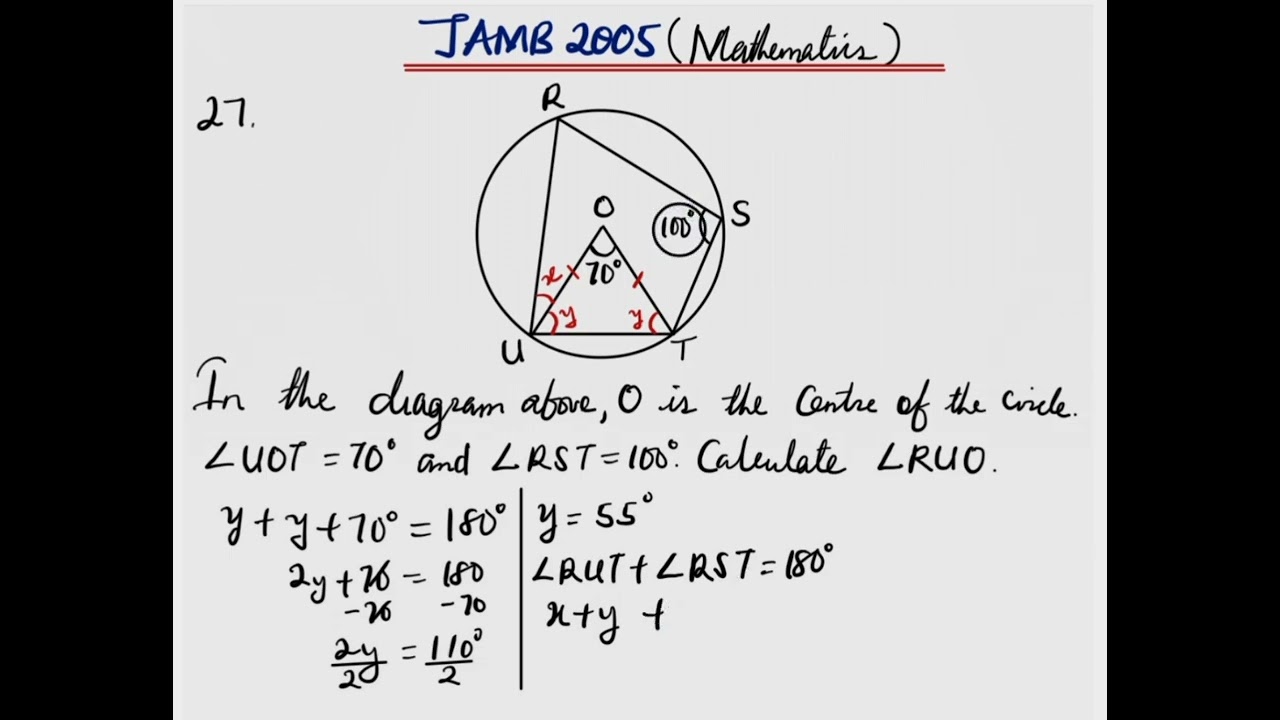 JAMB 2005 (Mathematics)
27.
R
O
S
100°
70°
x
y
y
U
T
In the diagram above, O is the centre of the circle.
∠UOT = 70° and ∠RST = 100°. Calculate ∠RUO.
y + y + 70° = 180°
2y + 70 = 180
-70 -70
2y/2 = 110°/2
y = 55°
∠RUT + ∠RST = 180°
x + y +